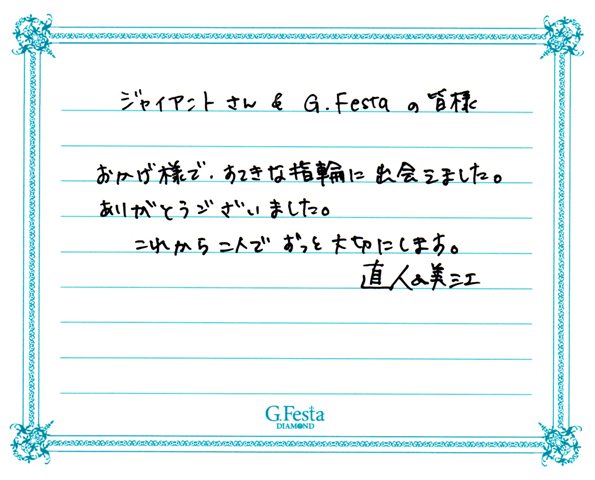 ジャイアントさん & G.Festaの皆様
おかげ様で、すてきな指輪に出会えました。
ありがとうございました。
これから二人でずっと大切にします。
直人&美江
G.Festa
DIAMOND